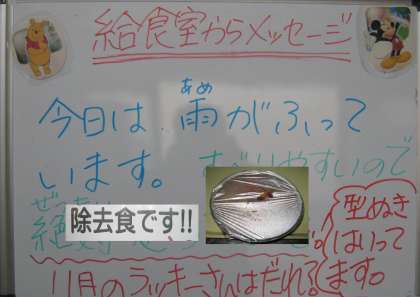 給食室からメッセージ
あめ
今日は、雨がふって
います。すべりやすいので
ぜ
絶
除去食です!!
。型ぬき
はいって
ます。
11月のラッキーさんはだれ?